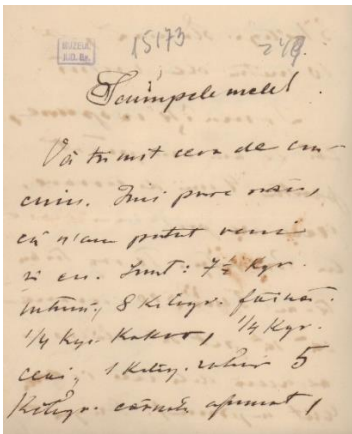 MUZEUL
JUD. Bv.
15173
249
Scumpele mele!
Vă trimit ceva de Cră-
ciun. Îmi pare rău,
că n'am putut veni
și eu. Sunt: 7½ Kgr.
8 Kilogr. făină.
1/4 Kgr. Kakao, 1/4 Kgr.
ceai, 1 Kilogr. zahăr 5
Kilogr. carne afumat,